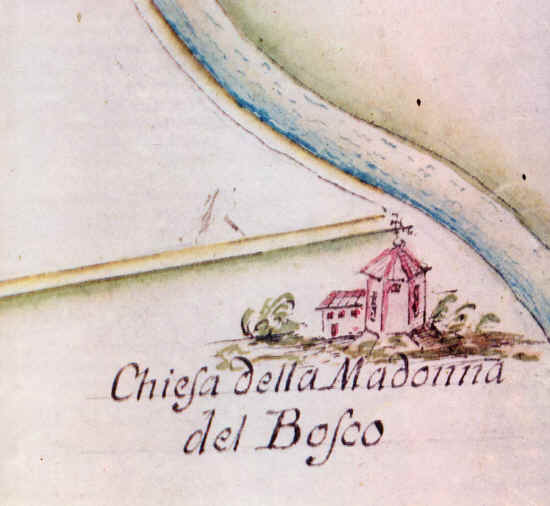 Chieſa della Madonna
del Boſco